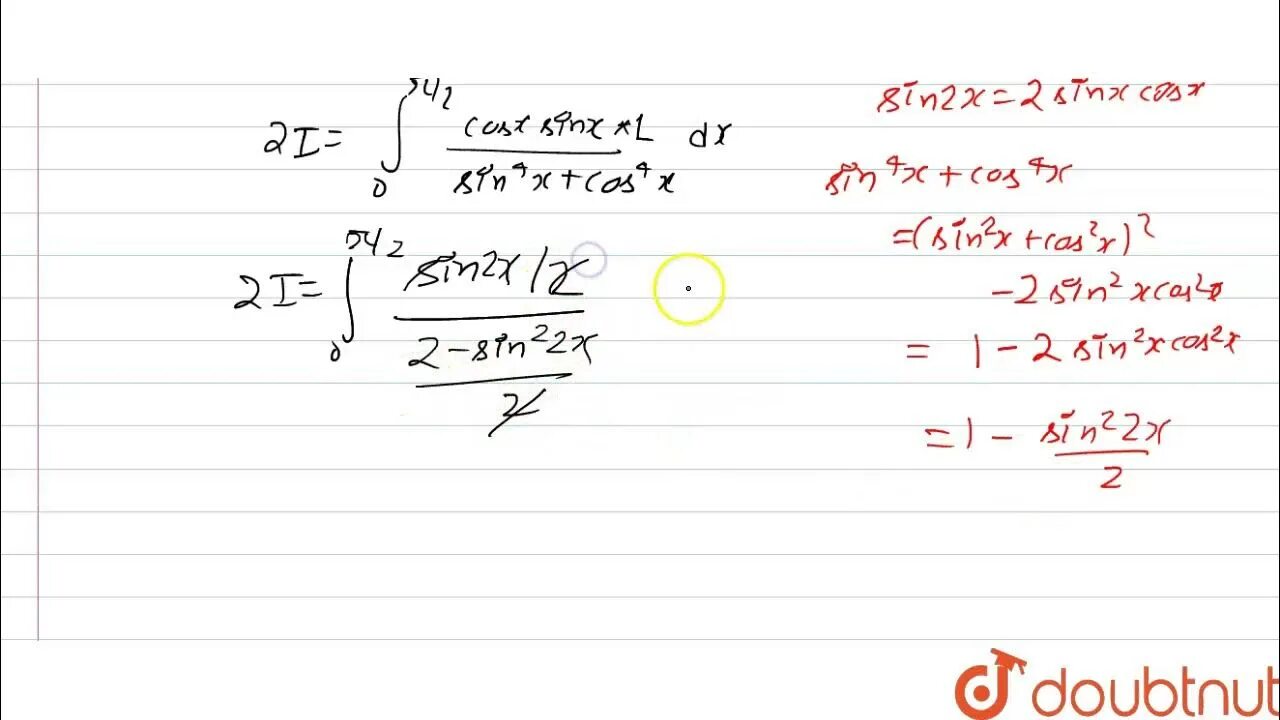 2I = ∫₀^(π/2) (cosx sinx *1)/(sin⁴x + cos⁴x) dx
2I = ∫₀^(π/2) (sin2x/2)/((2 - sin²2x)/2)
sin2x = 2 sinx cosx
sin⁴x + cos⁴x
= (sin²x + cos²x)²
- 2 sin²x cos²x
= 1 - 2 sin²x cos²x
= 1 - sin²2x/2
doubtnut